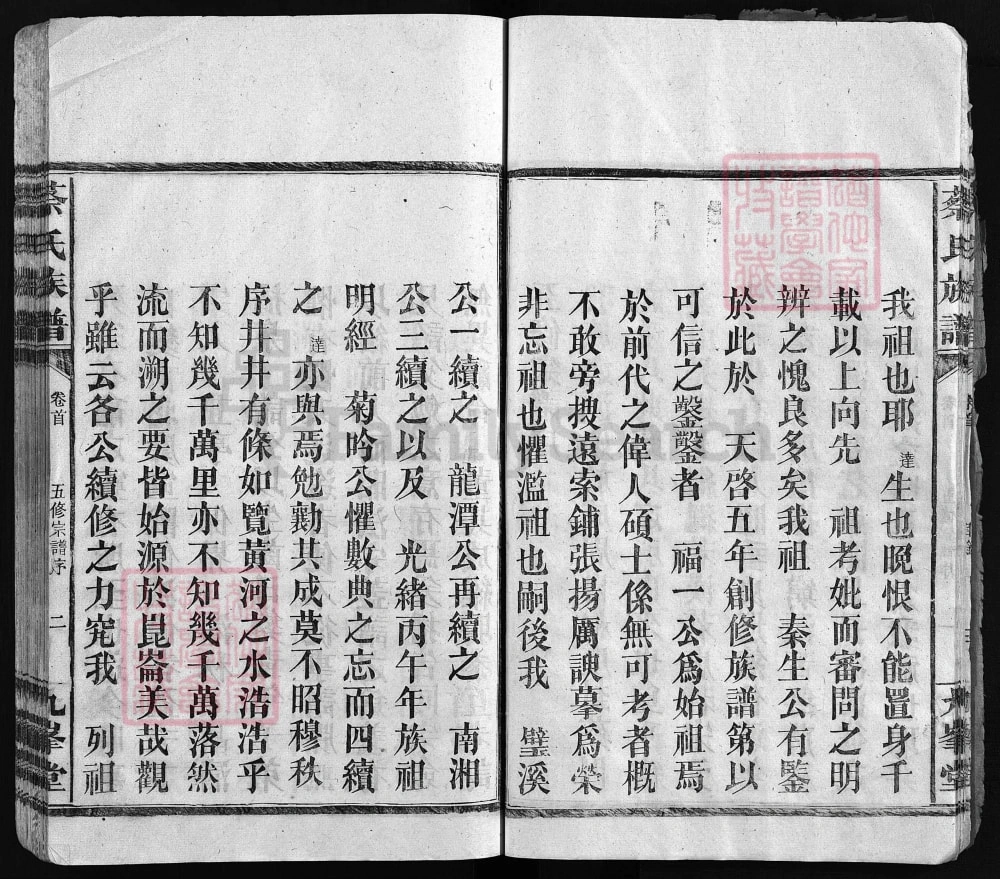 蔡氏族譜
九峯堂
我祖也耶達生也晚恨不能置身千
載以上向先　祖考妣而審問之明
辨之愧良多矣我祖　秦生公有鑒
於此於　天啓五年創修族譜第以
可信之鑿鑿者　福一公爲始祖焉
於前代之偉人碩士係無可考者概
不敢旁搜遠索鋪張揚厲諛墓爲榮
非忘祖也懼濫祖也嗣後我　璧溪
公一續之　龍潭公再續之　南湘
公三續之以及　光緒丙午年族祖
明經　菊吟公懼數典之忘而四續
之達亦與焉勉勷共成莫不昭穆秩
序井井有條如覽黃河之水浩浩乎
不知幾千萬里亦不知幾千萬落然
流而溯之要皆始源於崑崙美哉觀
乎雖云各公續修之力究我　列祖
蔡氏族譜
卷首
五修宗譜序
二
九峯堂